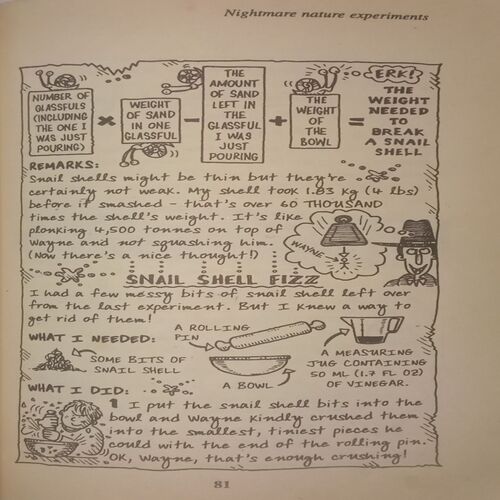 Nightmare nature experiments
NUMBER OF
GLASSFULS
(INCLUDING
THE ONE I
WAS JUST
POURING)
×
WEIGHT
OF SAND
IN ONE
GLASSFUL
−
THE
AMOUNT
OF SAND
LEFT IN
THE
GLASSFUL
I WAS
JUST
POURING
+
THE
WEIGHT
OF
THE
BOWL
=
ERK!
THE
WEIGHT
NEEDED
TO
BREAK
A SNAIL
SHELL
REMARKS:
Snail shells might be thin but they're
certainly not weak. My shell took 1.83 kg (4 lbs)
before it smashed – that's over 60 THOUSAND
times the shell's weight. It's like
plonking 4,500 tonnes on top of
Wayne and not squashing him.
(Now there's a nice thought!)
WAYNE
SNAIL SHELL FIZZ
I had a few messy bits of snail shell left over
from the last experiment. But I knew a way to
get rid of them!
WHAT I NEEDED:
SOME BITS OF
SNAIL SHELL
A ROLLING
PIN
A BOWL
A MEASURING
JUG CONTAINING
50 ML (1.7 FL OZ)
OF VINEGAR.
WHAT I DID:
1 I put the snail shell bits into the
bowl and Wayne kindly crushed them
into the smallest, tiniest pieces he
could with the end of the rolling pin.
OK, Wayne, that's enough crushing!
81